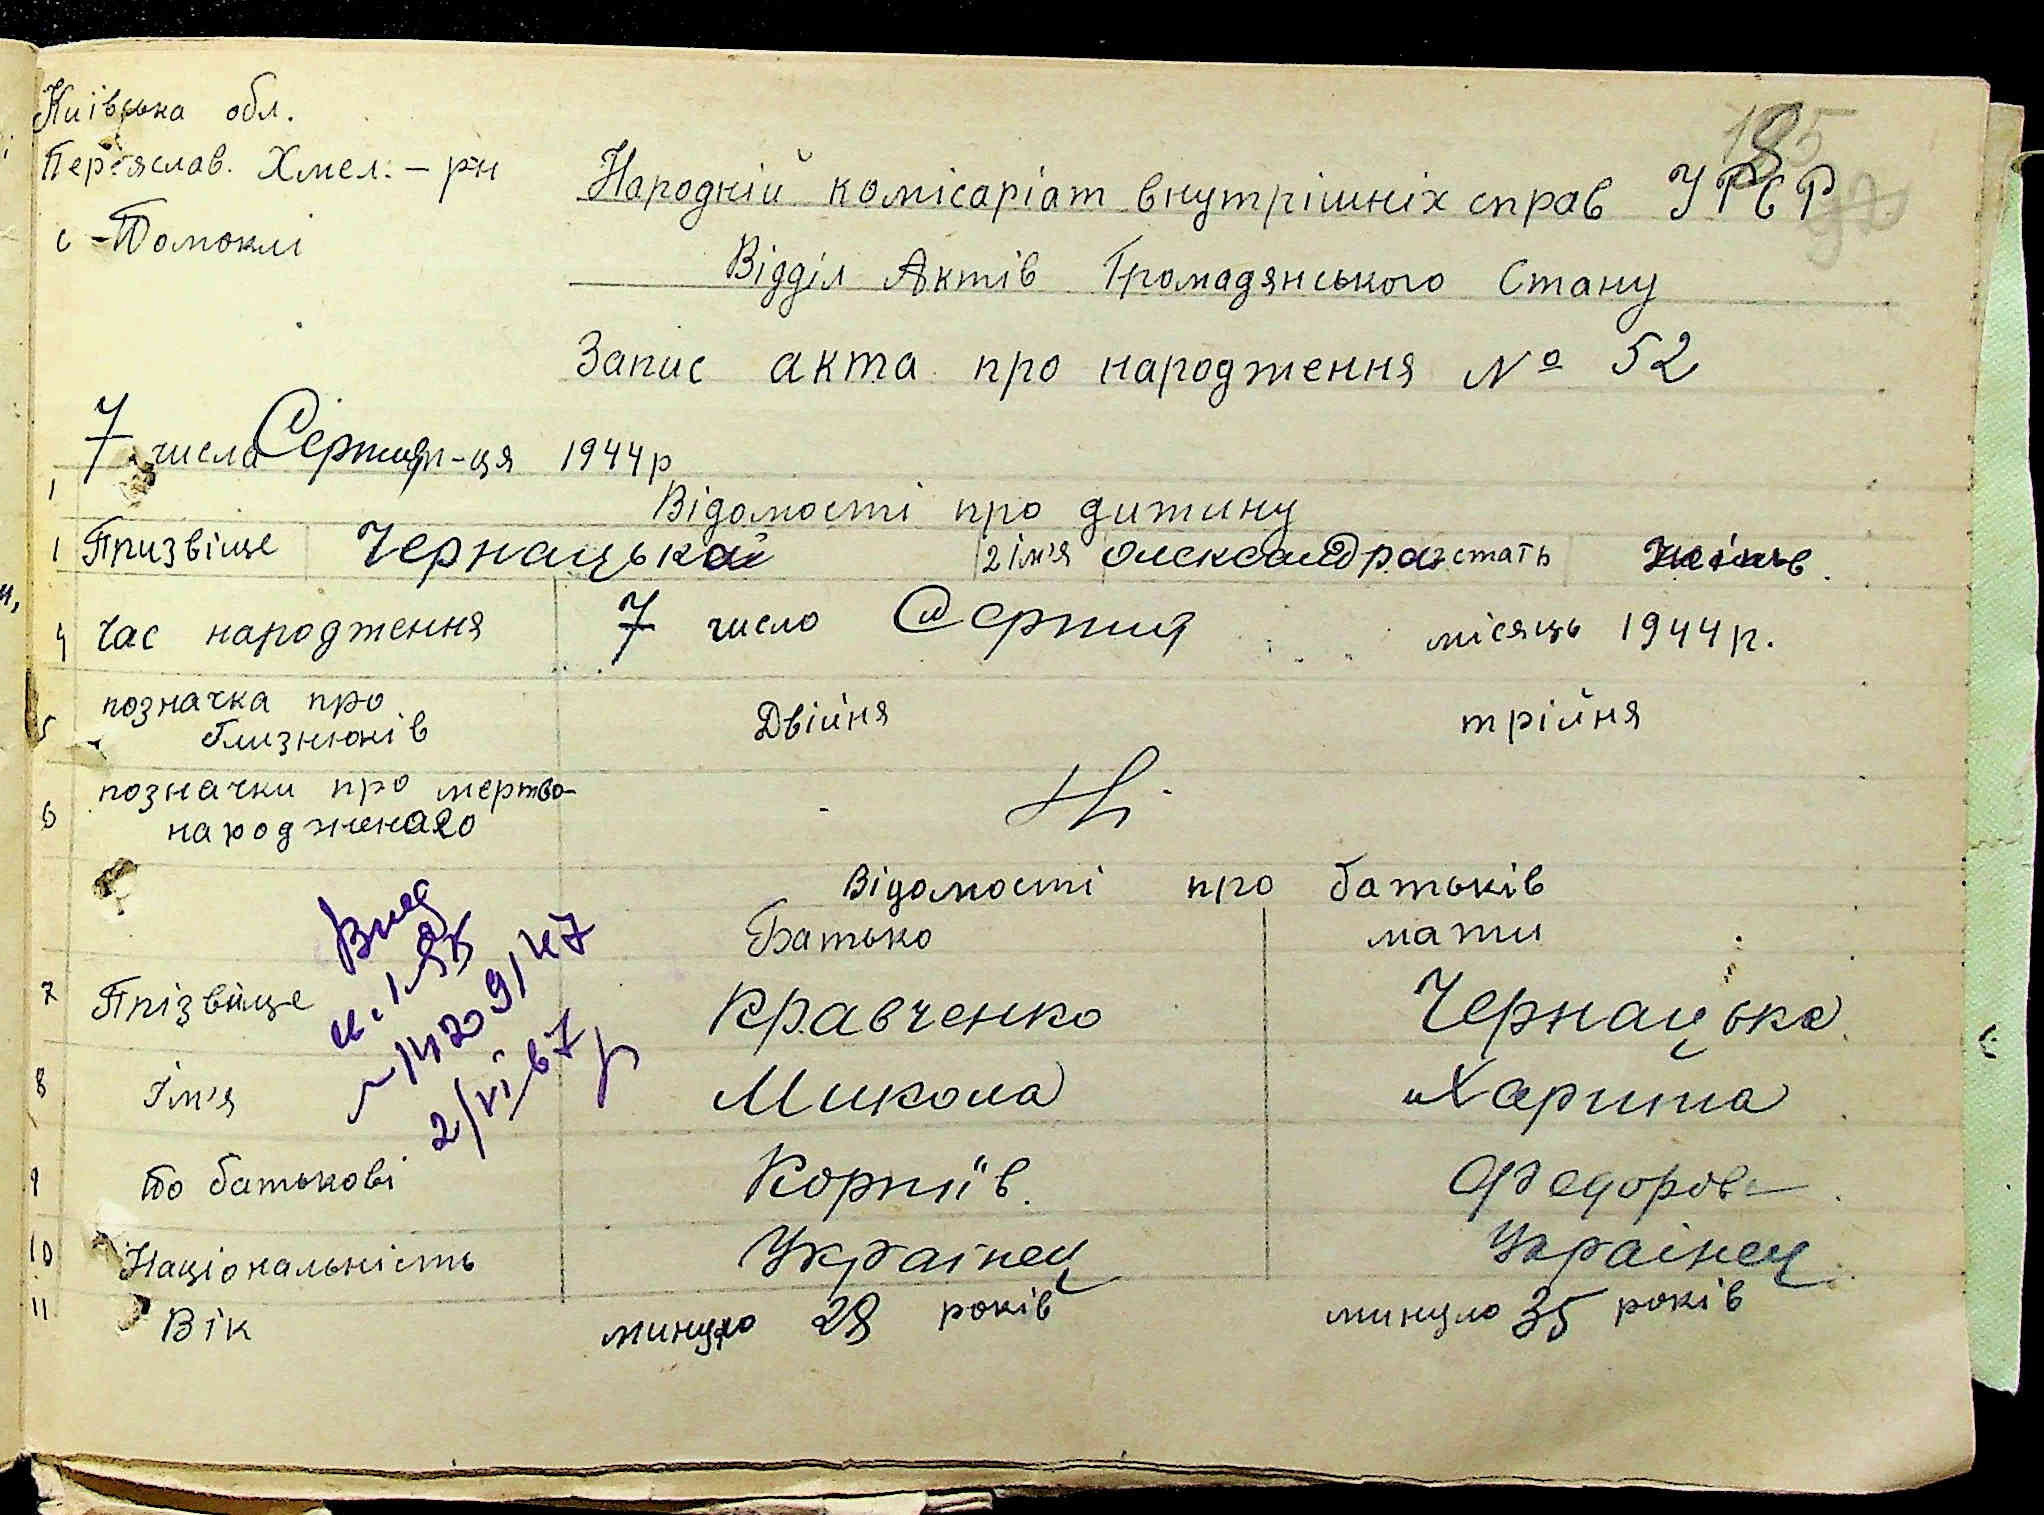 Київська обл.
Переяслав. Хмел. – рн
с – Помоклі
Народній комісаріат внутрішніх справ УРСР
Відділ Актів Громадянського Стану
Запис акта про народження № 52
7 числа Серпня м-ця 1944р
Відомості про дитину
1 Призвіще Чернацька 2 ім'я Олександра 3 стать жіноч.
4 Час народження 7 число Серпня місяць 1944р.
5 позначка про близнюків Двійня трійня
6 позначки про мертво-
народженого Ні
Відомості про батьків
Батько мати
7 Прізвище Кравченко Чернацька
8 Ім'я Микола Харита
9 По батькові Корніїв Федорів
10 Національність Українец Українец
11 Вік минуло 28 років минуло 35 років
2/VI 67р